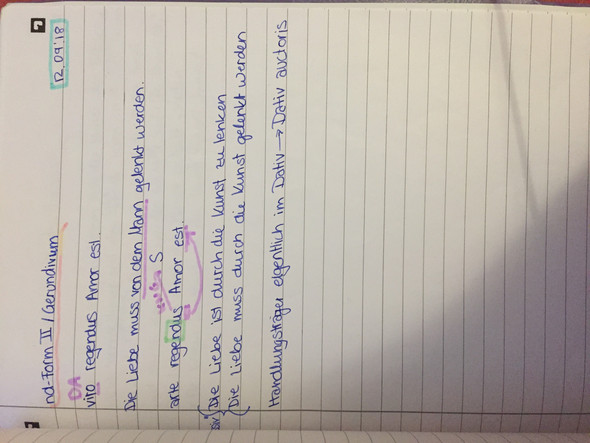 12.09.'18
nd-Form II / Gerundivum
DA
viro regendus Amor est.
Die Liebe muss von dem Mann gelenkt werden.
S
arte regendus Amor est.
Die Liebe ist durch die Kunst zu lenken
Die Liebe muss durch die Kunst gelenkt werden
Handlungsträger eigentlich im Dativ → Dativ auctoris